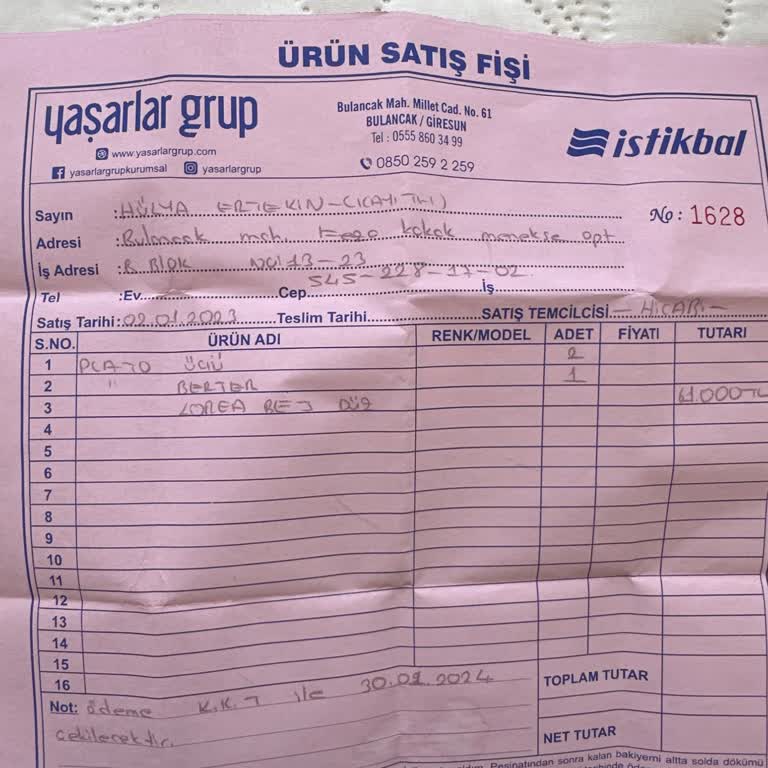 ÜRÜN SATIŞ FİŞİ
yaşarlar grup
www.yasarlargrup.com
yasarlargrupkurumsal yasarlargrup
Bulancak Mah. Millet Cad. No. 61
BULANCAK / GİRESUN
Tel : 0555 860 34 99
0850 259 2 259
istikbal
Sayın : HÜLYA ERTEKİN-
No: 1628
Adresi : Bulancak mah. kokak menekşe apt
İş Adresi : B Blok NO:13-23
Tel :Ev. Cep. 545-228-17-02 İş
Satış Tarihi: 02.01.2023 Teslim Tarihi. SATIŞ TEMCİLCİSİ - HİCABİ -
S.NO. ÜRÜN ADI RENK/MODEL ADET FİYATI TUTARI
1 PLATO ÜÇLÜ 2
2 " BERJER 1
3 LOREA BEJ DÜZ 61.000TL
4
5
6
7
8
9
10
11
12
13
14
15
16
TOPLAM TUTAR
Not: ödeme K.K.T ile 30.01.2024
çekilecektir.
NET TUTAR
Peşinatından sonra kalan bakiyemi altta solda dökümü